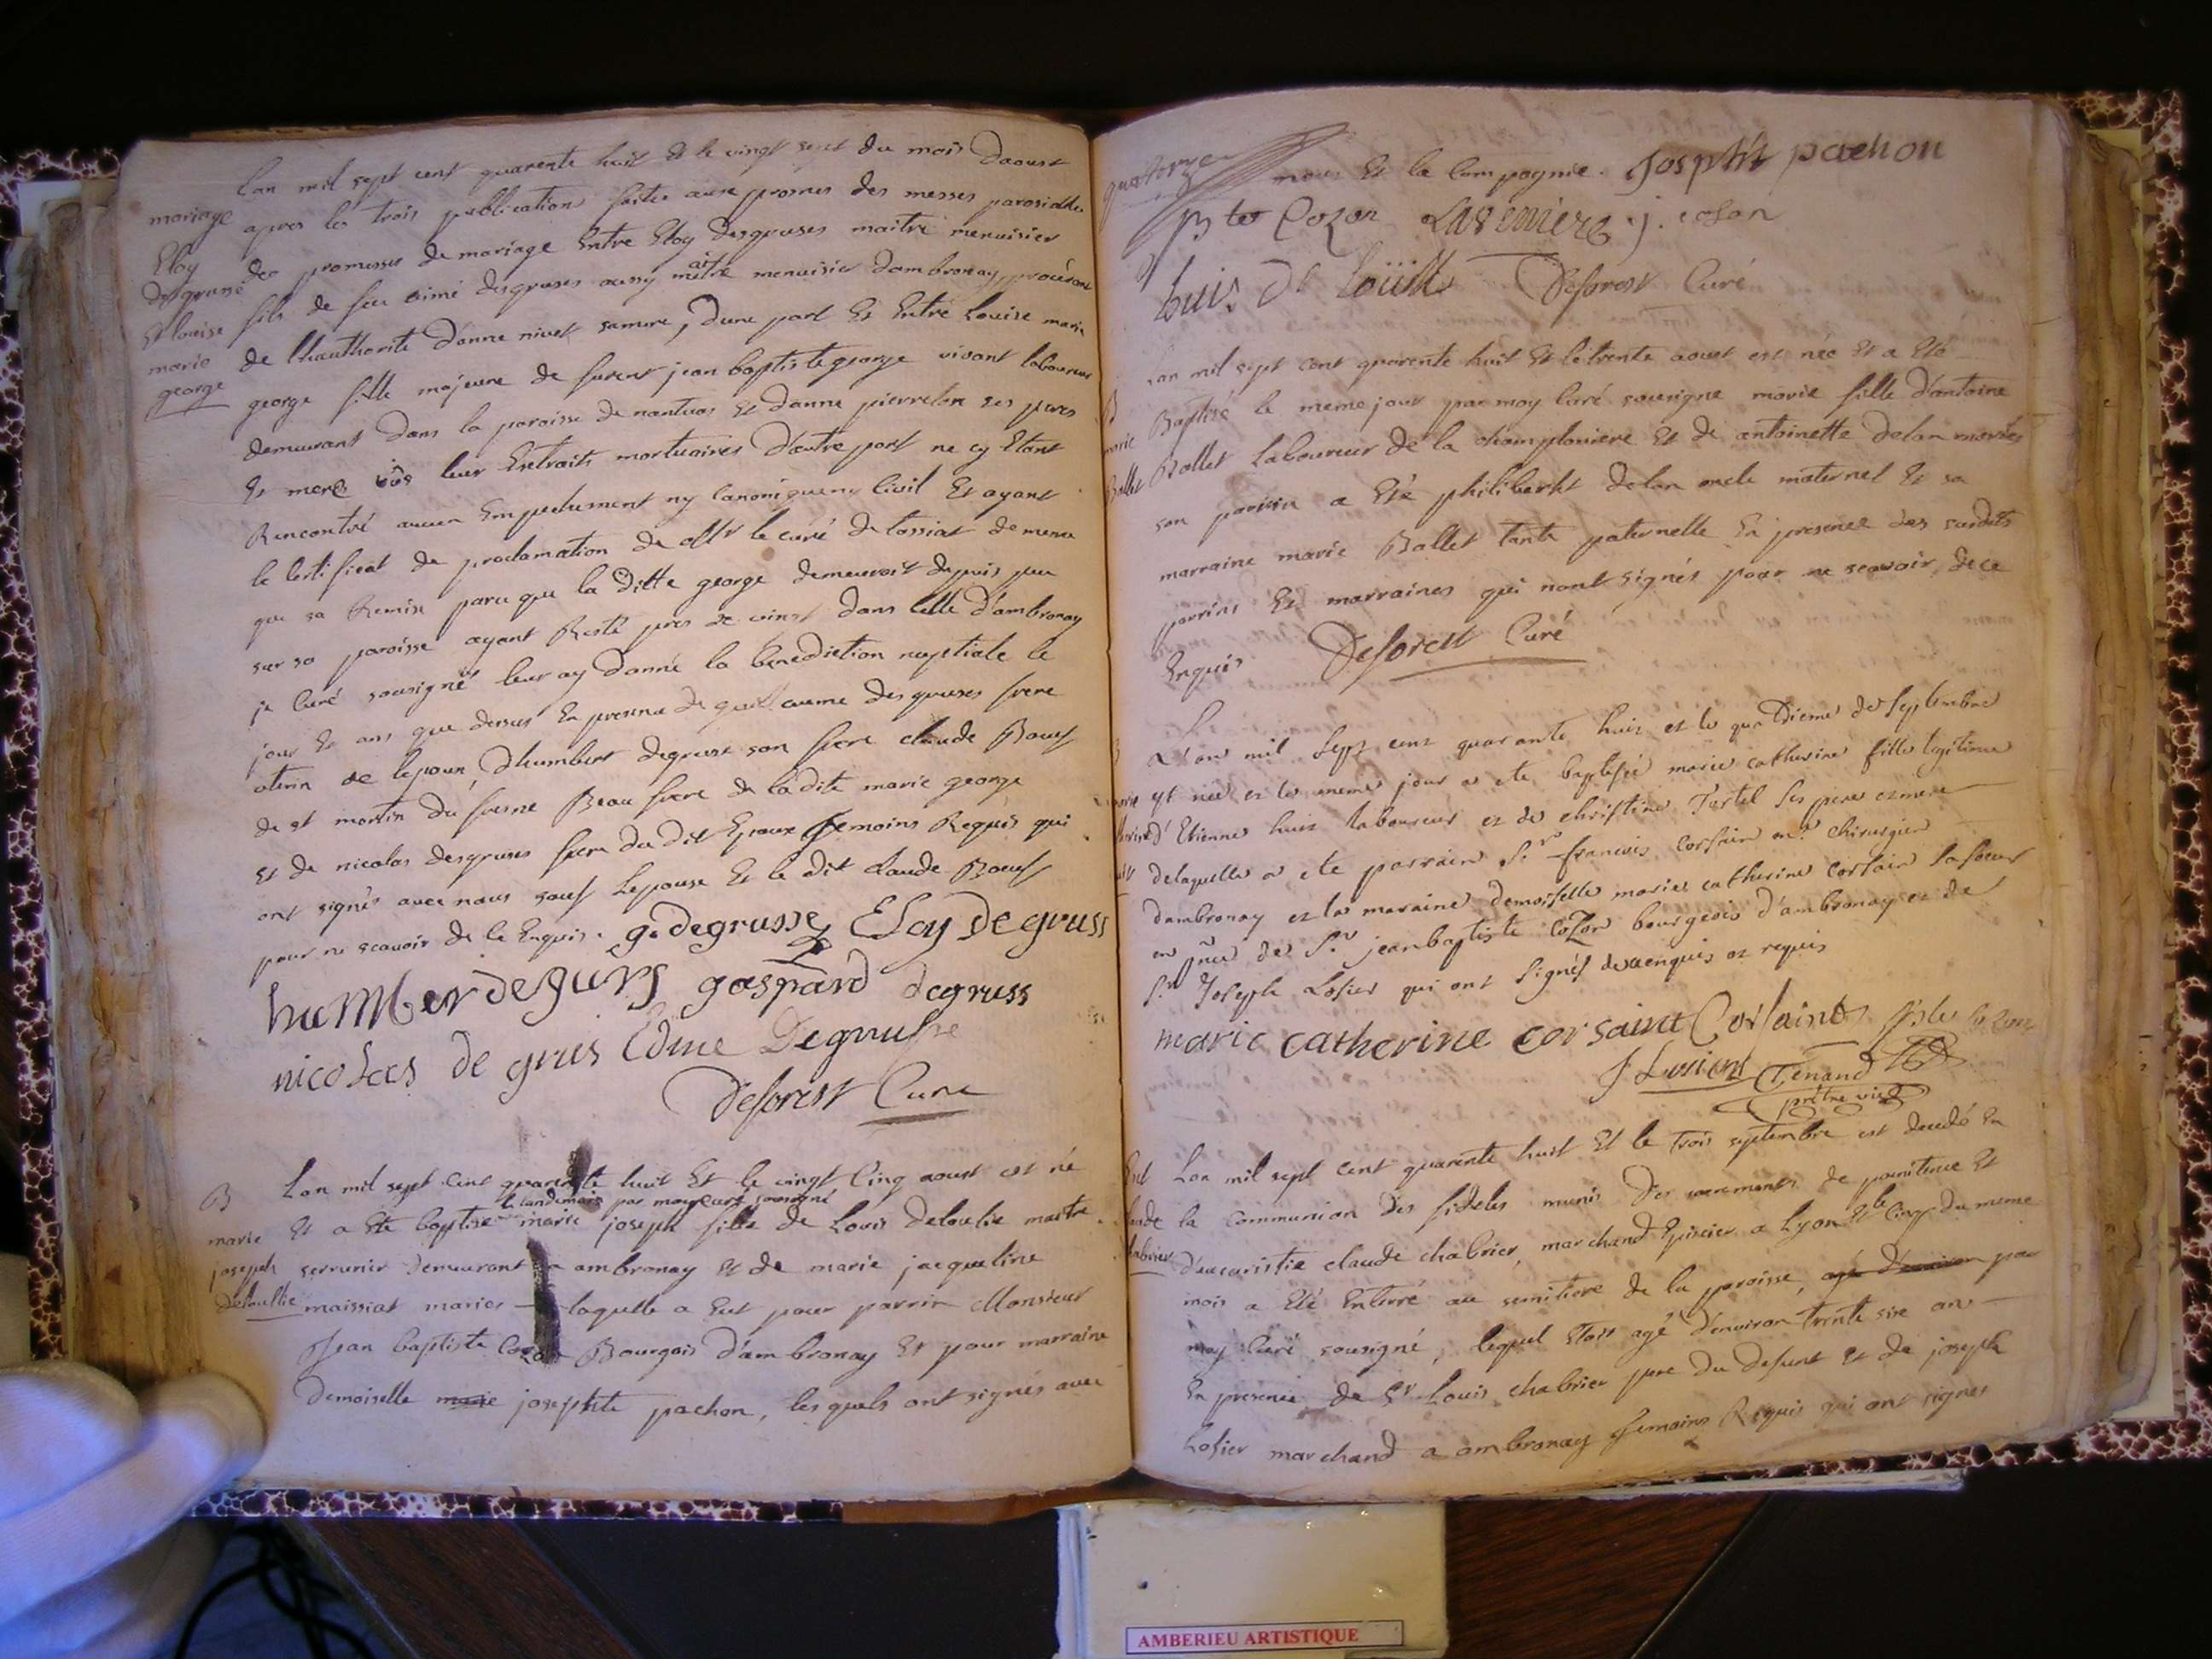 Lan mil sept cent quarente huit Et le vingt sept du mois Daoust
mariage apres les trois publications faites aux prosnes des messes paroissialles
Eloy des promesses de mariage Entre Eloy Desgruses maitre menuisier
desgruse fils de feu aimé desgruses aussy maitre menuisier dambronay, procédant
Et louise de l'hauthorité d'anne nivet samere, Dune part Et Entre Louise marie
marie george fille majeure de furent jean baptiste george vivant laboureur
george demeurant dans la paroisse de nantuas et danne pierrelon ses peres
Et mere vûs leur Extraits mortuaires D'autre part ne cy Etant
Rencontré aucun Empechement ny Canonique ny Civil Et ayant
le Certificat de proclamation de Mr le curé de tossiat de meme
que sa Remise parce que la Ditte george demeuroit depuis peu
sur sa paroisse ayant Resté pres de vingt dans celle d'ambronay
je Curé sousigné leur ay Donné la bénédiction nuptiale le
jour Et ans que dessus En presence de guillaume desgruses frere
uterin de lepoux, Dhumbert degruse son frere claude Boeuf
de st martin du fresne Beau frere de la dite marie george
et de nicolas desgruses frere du dit Epoux temoins Requis qui
ont signés avec nous sauf Lepouse Et le dit Claude Boeuf
pour ne scavoir de ce Enquis. g. degrusse Eloy De gruss
humber de gurs gaspard degruss
nicolas de grus Edme Degrusse
Deforest Curé
B Lan mil sept Cent quarente huit Et le vingt Cinq aoust est né
le landemain par moy curé sousigné
marie Et a Eté baptisé marie joseph fille de Louis Deloulie maitre
joseph serrurier Demeurant a ambronay et de marie jacqueline
Deloullie maissiat mariés laquelle a Eut pour parrin Monsieur
Jean baptiste Cozon Bourgois d'ambronay Et pour marraine
Demoiselle marie josephte pachon, les quels ont signés avec
quatorze
nous Et la Compagnie. Josphte pachon
Bte Cozon Laseniere j. coson
Luis De loüille Deforest Curé
Lan mil sept cent quarente huit Et le trente aoust est née Et a Eté
B Baptisé le meme jour par moy Curé sousigné marie fille d'antoine
marie Ballet Laboureur de la championiere Et de antoinette Delan mariés
Ballet son parrin a Eté philiberht Delan oncle maternel Et sa
marraine marie Ballet tante paternelle En presence des susdits
parrins Et marraines qui nont signés pour ne scavoir, de ce
Enquis Deforest Curé
L'an mil Sept cent quarante huit et le quatrieme de Septembre
marie est née et le meme jour a ete baptisée marie catherine fille legitime
d'Etienne huit laboureur et de christine Turtel ses pere et mere
delaquelle a ete parrain Sr francois Corsain me chirurgien
dambronay et la maraine demoiselle marie catherine Corsain sa soeur
en pnce de Sr jeanbaptiste CoZon bourgeois d'ambronay et de
Sr Joseph Losier qui ont signés de ce enquis et requis
marie catherine corsaint Corsaint Bte Cozon
J Losier Tenand
prêtre vic
Ent Lan mil sept Cent quarente huit Et le trois septembre est decedé En
claude la Communion Des fideles munis Des sacrements de pœnitence Et
chabrier d'eucaristie claude chabrier, marchand Epissier a Lyon Et le Cinq du meme
mois a Eté Enterré au semitiere de la paroisse, agé d'environ par
moy Curé sousigné, lequel Etoit agé d'environ trente six ans
En presence de Sr Louis chabrier pere Du Defunt et de joseph
Losier marchand a ambronay temoins Requis qui ont signés
AMBERIEU ARTISTIQUE